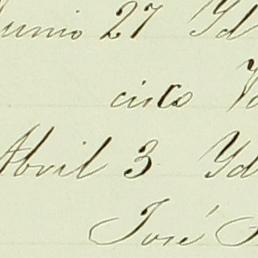 Junio 27 Yd
cisco
Abril 3 Yd
José